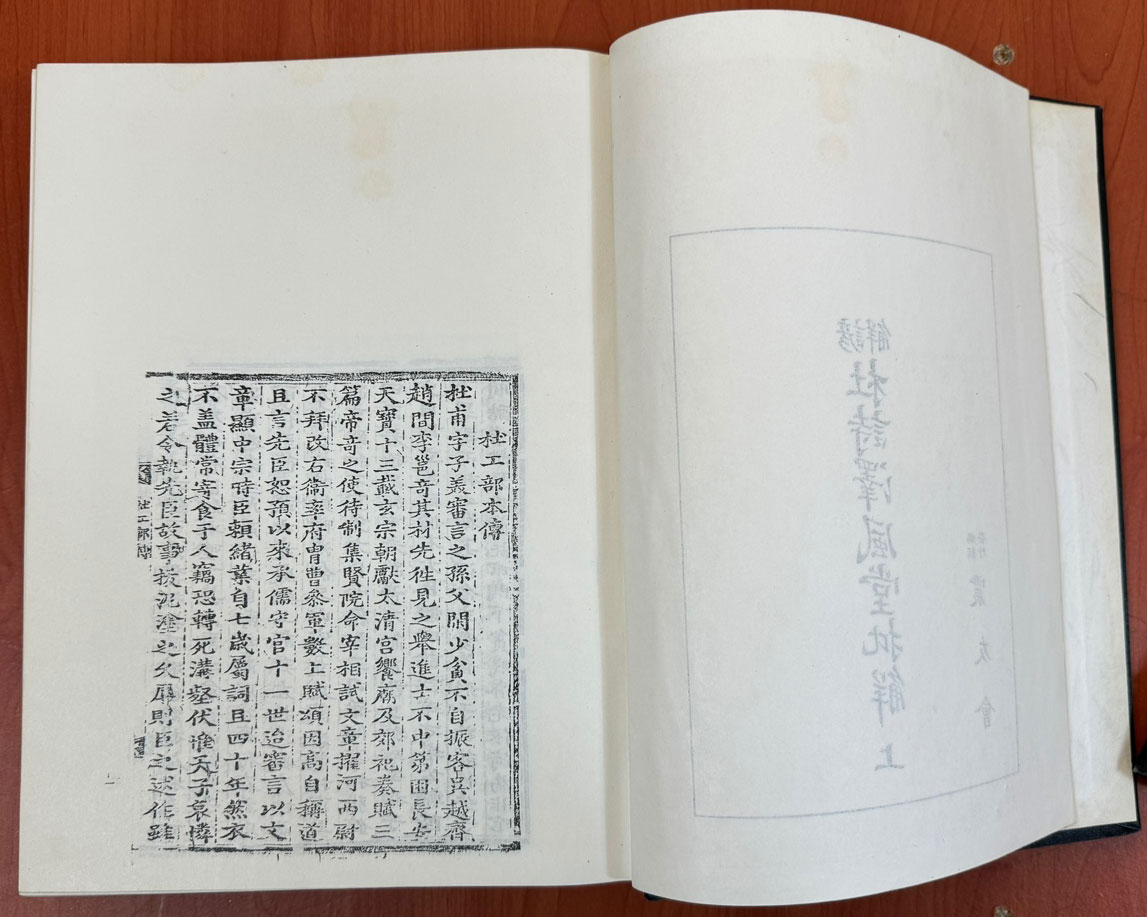 諺解
杜詩澤風堂批解 上
杜工部本傳
杜甫字子美審言之孫父閑少貧不自振客吳越齊
趙間李邕竒其材先徃見之舉進士不中苐困長安
天寶十三載玄宗朝獻太清宮饗廟及郊祀奏賦三
篇帝竒之使待制集賢院命宰相試文章擢河西尉
不拜改右衞率府冑曹叅軍數上賦頌因高自稱道
且言先臣恕預以來承儒守官十一世迨審言以文
章顯中宗時臣賴緒業自七歲屬詞且四十年然衣
不盖體常寄食于人竊恐轉死溝壑伏惟天子哀憐
之若令執先臣故事拔泥塗之久辱則臣之述作雖
杜工部傳